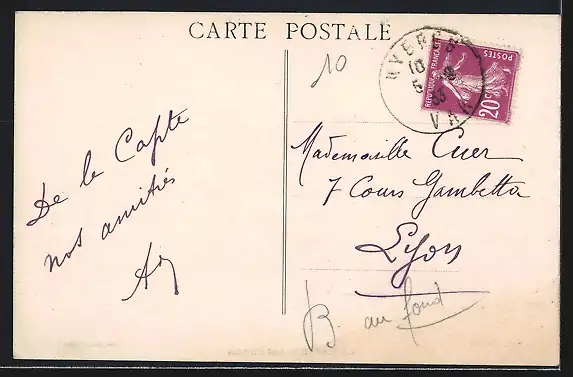 CARTE POSTALE
10
HYERES
VAR
POSTES
REPUBLIQUE FRANÇAISE
20c
De la Capte
nos amitiés
Mademoiselle Cuer
7 Cours Gambetta
Lyon
B. au fond